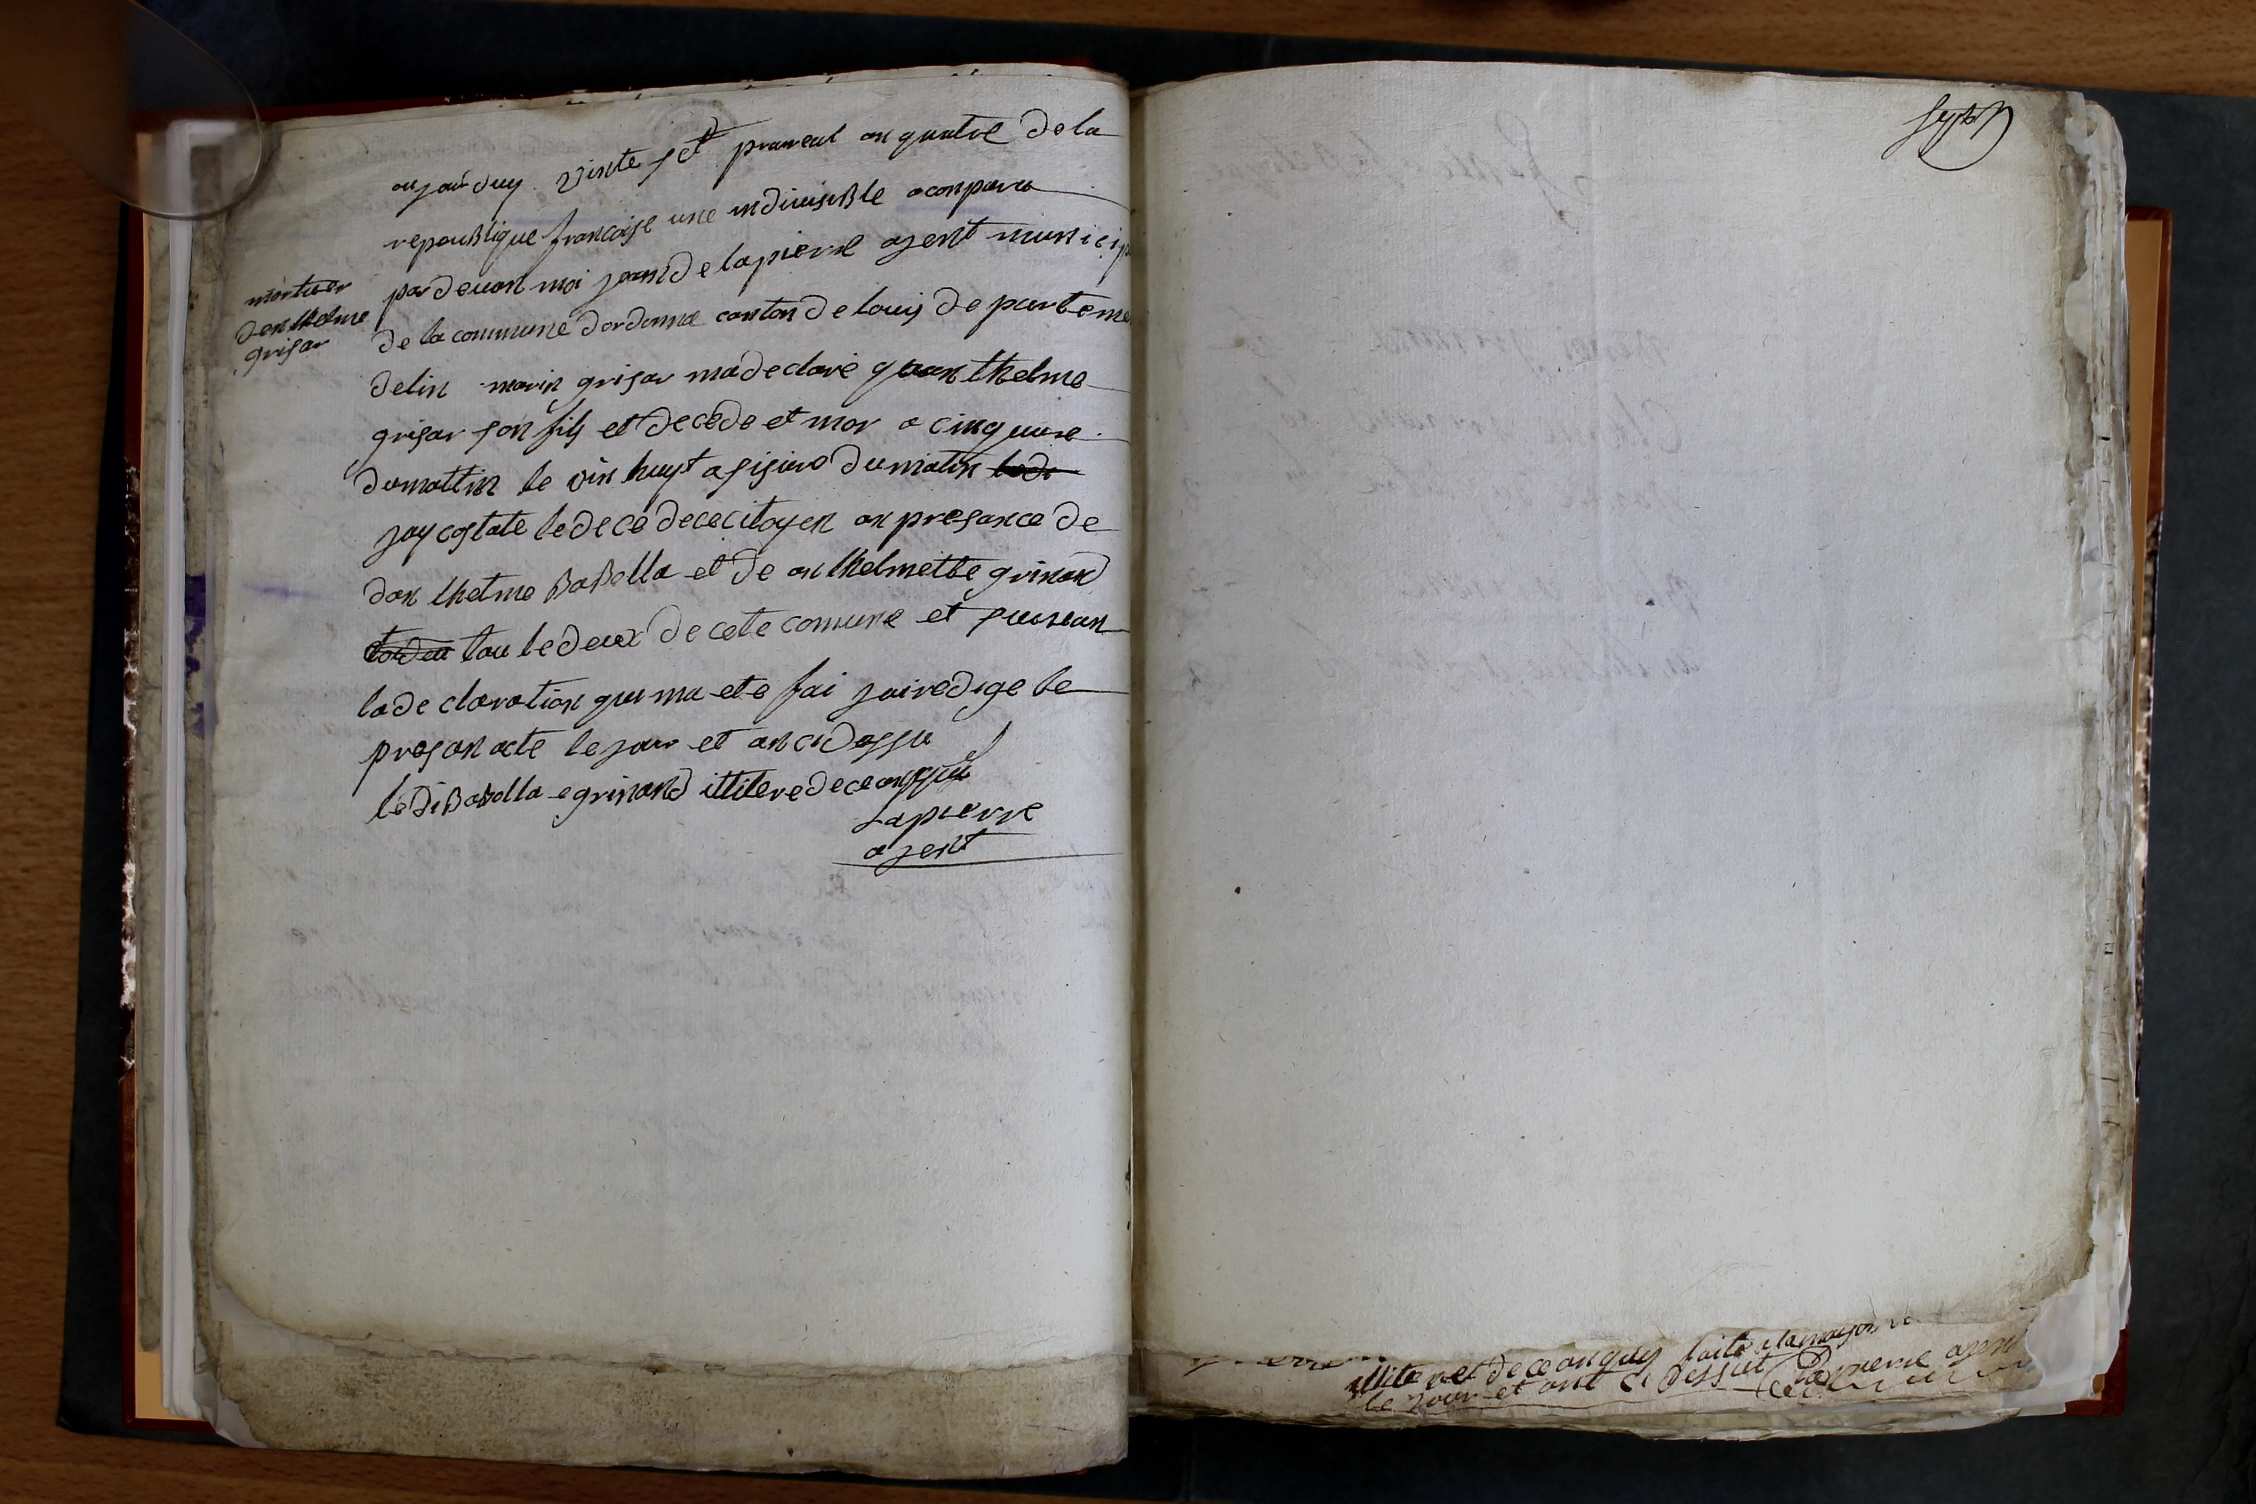 aujourduy vinte set prareal an quatre de la
repoublique francoise une indiuisible a conparu
par deuan moi jean de lapierre agent municip
mortuer
danthelme
grisar
de la commune dordonna canton de louis de parteme
delin marin grisar ma declaré quanthelme
grisar son fils et decede et mor a cinq eure
du mattin le vin huyt a sis eure du matin
jay costate le dece de ce citoyen an presance de
danthelme Babolla et de anthelmette grinand
tou le deux de cete comune et suiuan
la declaration qui ma ete fai jai redige le
presan acte le jour et an ci dessu
le di Babolla e grinand illitere de ce anquii
Lapierre
agent
sept
illiteret de ce anquis faite a la maison
le jour et ant ci dessut Lapierre agent